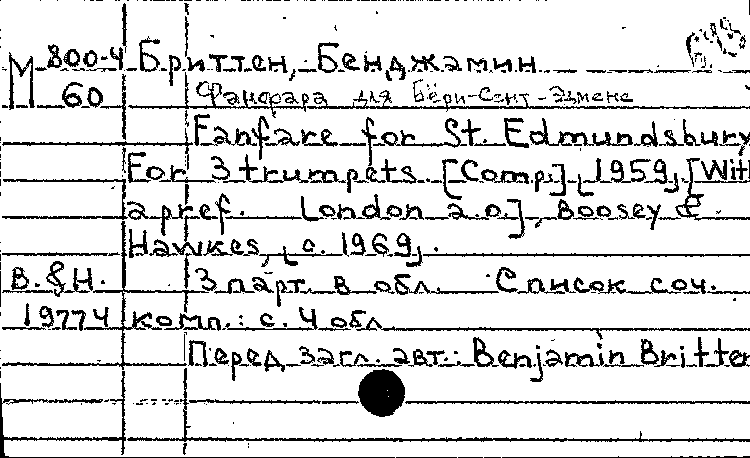 М 800-4 Бриттен, Бенджамин
60 Фанфара для Бери-Сент-Эдменс
Fanfare for St. Edmundsbury
For 3 trumpets. [Comp.] 1959. [With
a pref. London a.o.], Boosey &
Hawkes, c. 1969.
B.&H. 3 парт. в обл. Список соч.
19774 комп.: с. 4 обл
Перед загл. авт.: Benjamin Britten